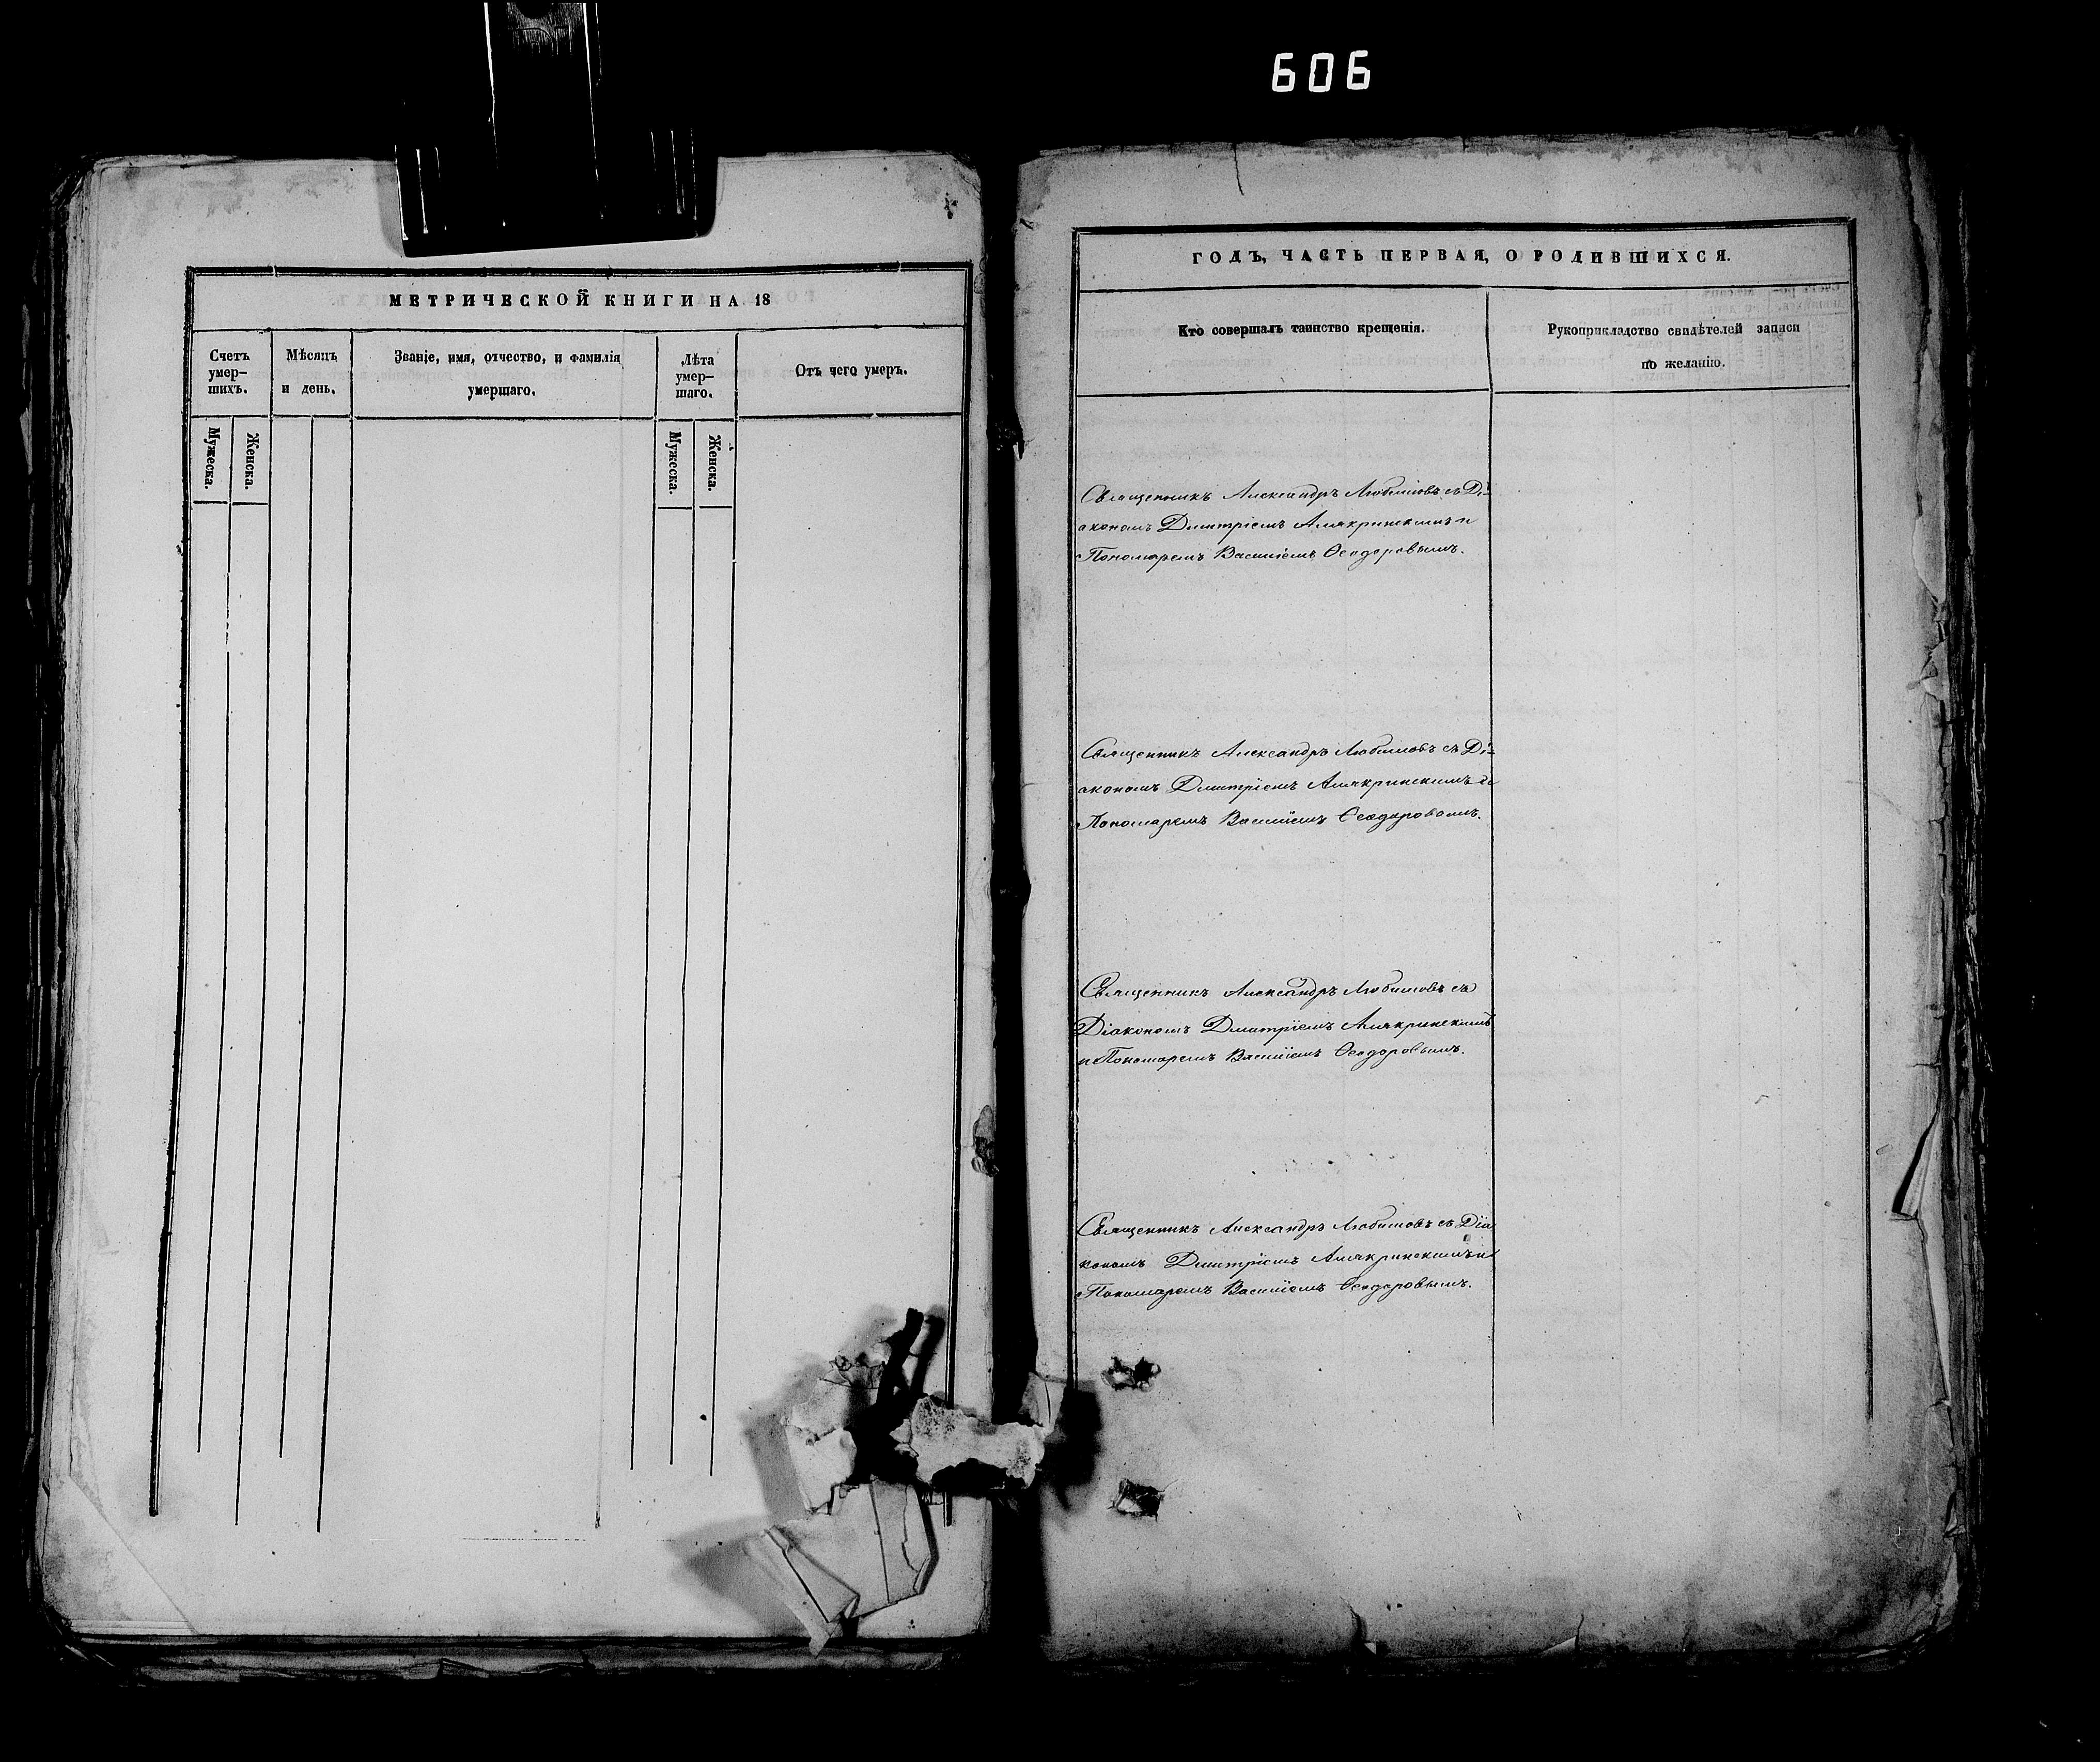 606
МЕТРИЧЕСКОЙ КНИГИ НА 18
Счетъ
умер-
шихъ.
Мѣсяцъ
и день.
Званіе, имя, отчество, и фамилія
умершаго.
Лѣта
умер-
шаго.
Отъ чего умеръ.
Мужеска.
Женска.
Мужеска.
Женска.
ГОДЪ, ЧАСТЬ ПЕРВАЯ, О РОДИВШИХСЯ.
Кто совершалъ таинство крещенія.
Рукоприкладство свидѣтелей записи
по желанію.
Священникъ Александръ Любимовъ съ Ді-
акономъ Дмитріемъ Алякринскимъ и
Пономаремъ Василіемъ Ѳеодоровымъ.
Священникъ Александръ Любимовъ съ Ді-
акономъ Дмитріемъ Алякринскимъ и
Пономаремъ Василіемъ Ѳеодоровымъ.
Священникъ Александръ Любимовъ съ
Діакономъ Дмитріемъ Алякринскимъ
и Пономаремъ Василіемъ Ѳеодоровымъ.
Священникъ Александръ Любимовъ съ Діа
кономъ Дмитріемъ Алякринскимъ и
Пономаремъ Василіемъ Ѳеодоровымъ.